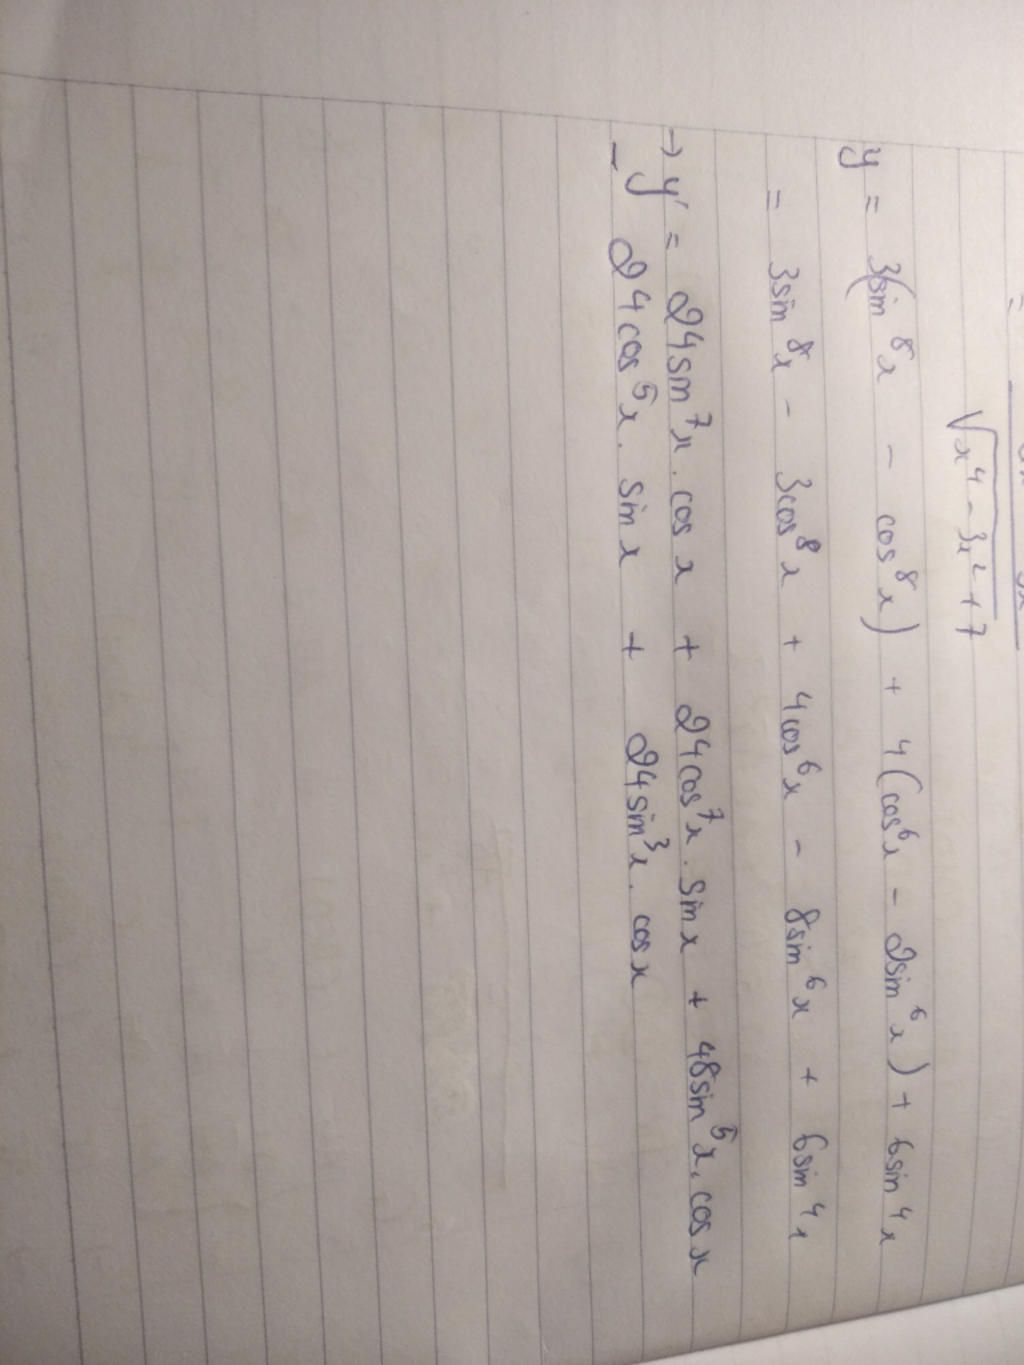 =
√x⁴ - 3x² + 7
y = 3(sin⁸x - cos⁸x) + 4(cos⁶x - 2sin⁶x) + 6sin⁴x
= 3sin⁸x - 3cos⁸x + 4cos⁶x - 8sin⁶x + 6sin⁴x
→ y' = 24sin⁷x . cos x + 24cos⁷x . sin x + 48sin⁵x . cos x
- 24cos⁵x . sin x + 24sin³x . cos x